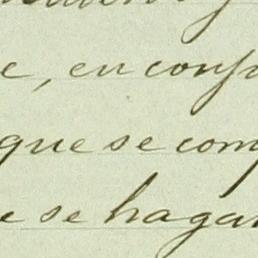 e, en conf
que se com
e se hagan